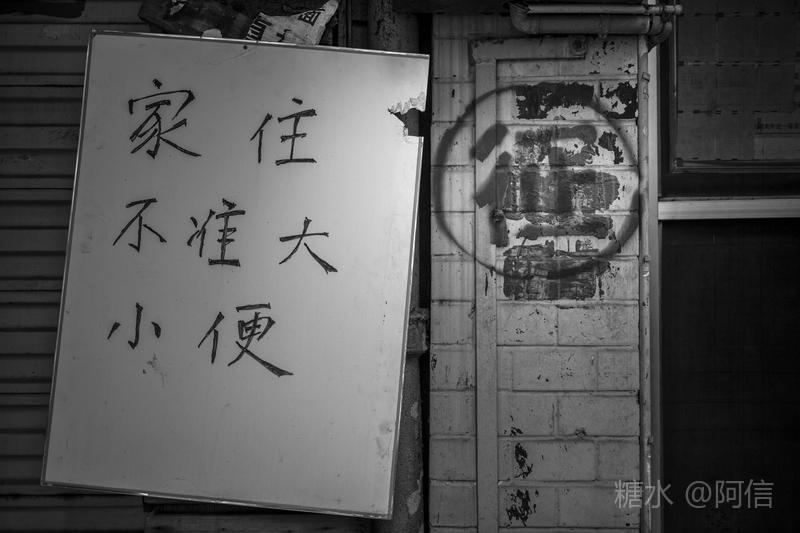 家住
不准大
小便
糖水 @阿信